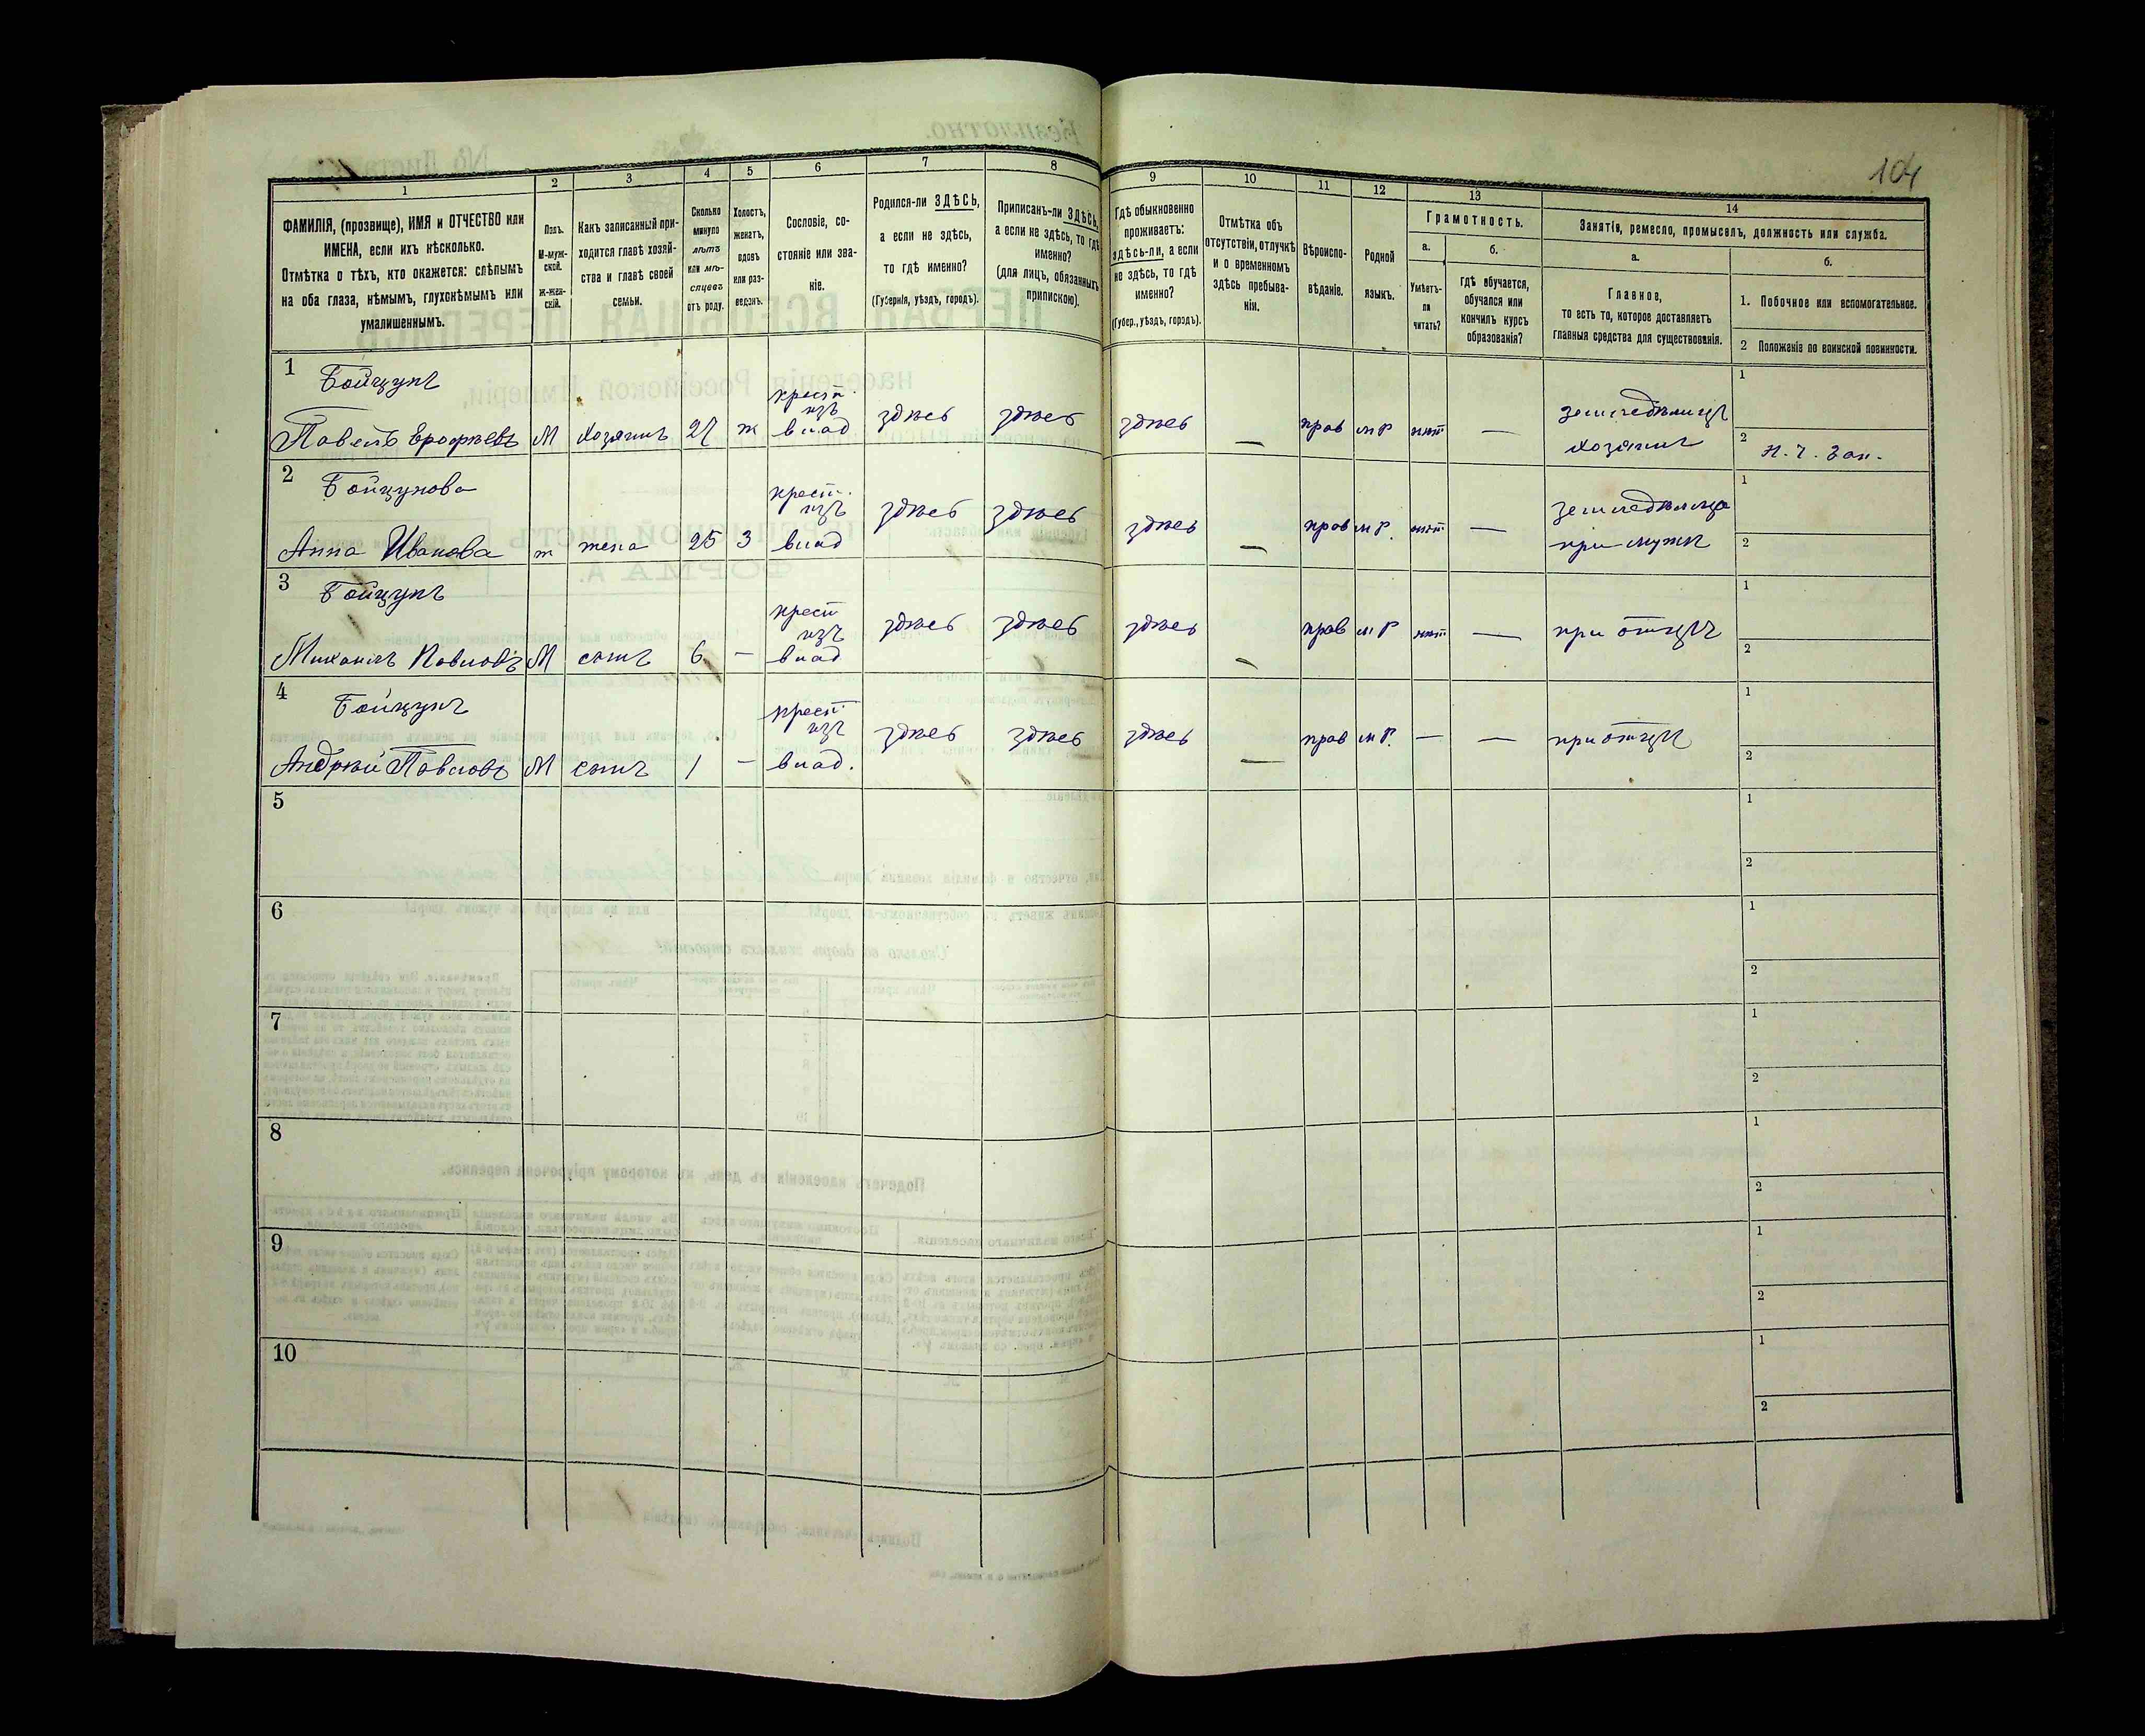 104
1
2
3
4
5
6
7
8
9
10
11
12
13
14
ФАМИЛІЯ, (прозвище), ИМЯ и ОТЧЕСТВО или
ИМЕНА, если ихъ нѣсколько.
Отмѣтка о тѣхъ, кто окажется: слѣпымъ
на оба глаза, нѣмымъ, глухонѣмымъ или
умалишеннымъ.
Полъ.
М-муж-
ской.
ж-жен-
скій.
Какъ записанный при-
ходится главѣ хозяй-
ства и главѣ своей
семьи.
Сколько
минуло
лѣтъ
или мѣ-
сяцевъ
отъ роду.
Холостъ,
женатъ,
вдовъ
или раз-
веденъ.
Сословіе, со-
стояніе или зва-
ніе.
Родился-ли ЗДѢСЬ,
а если не здѣсь,
то гдѣ именно?
(Губернія, уѣздъ, городъ).
Приписанъ-ли ЗДѢСЬ,
а если не здѣсь, то гдѣ
именно?
(для лицъ, обязанныхъ
припискою).
Гдѣ обыкновенно
проживаетъ:
здѣсь-ли, а если
не здѣсь, то гдѣ
именно?
(Губер., уѣздъ, городъ).
Отмѣтка объ
отсутствіи, отлучкѣ
и о временномъ
здѣсь пребыва-
ніи.
Вѣроиспо-
вѣданіе.
Родной
языкъ.
Грамотность.
а.
Умѣетъ-
ли
читать?
б.
гдѣ обучается,
обучался или
кончилъ курсъ
образованія?
Занятія, ремесло, промыселъ, должность или служба.
а.
Главное,
то есть то, которое доставляетъ
главныя средства для существованія.
б.
1. Побочное или вспомогательное.
2 Положеніе по воинской повинности.
1 Бойцунъ
Павелъ Ерофѣевъ М хозяинъ 27 ж крест. изъ влад здѣсь здѣсь здѣсь — прав м р нѣт — земледѣлецъ хозяинъ
1
2 Н. Ч. Зап.
2 Бойцунова
Анна Иванова ж жена 25 З крест. изъ влад здѣсь здѣсь здѣсь — прав м р. нѣт — земледѣлица при мужѣ
1
2
3 Бойцунъ
Михаилъ Павловъ М сынъ 6 — крест изъ влад здѣсь здѣсь здѣсь — прав м р нѣт — при отцѣ
1
2
4 Бойцунъ
Андрей Павловъ М сынъ 1 — крест изъ влад. здѣсь здѣсь здѣсь — прав м р. — — при отцѣ
1
2
5
1
2
6
1
2
7
1
2
8
1
2
9
1
2
10
1
2